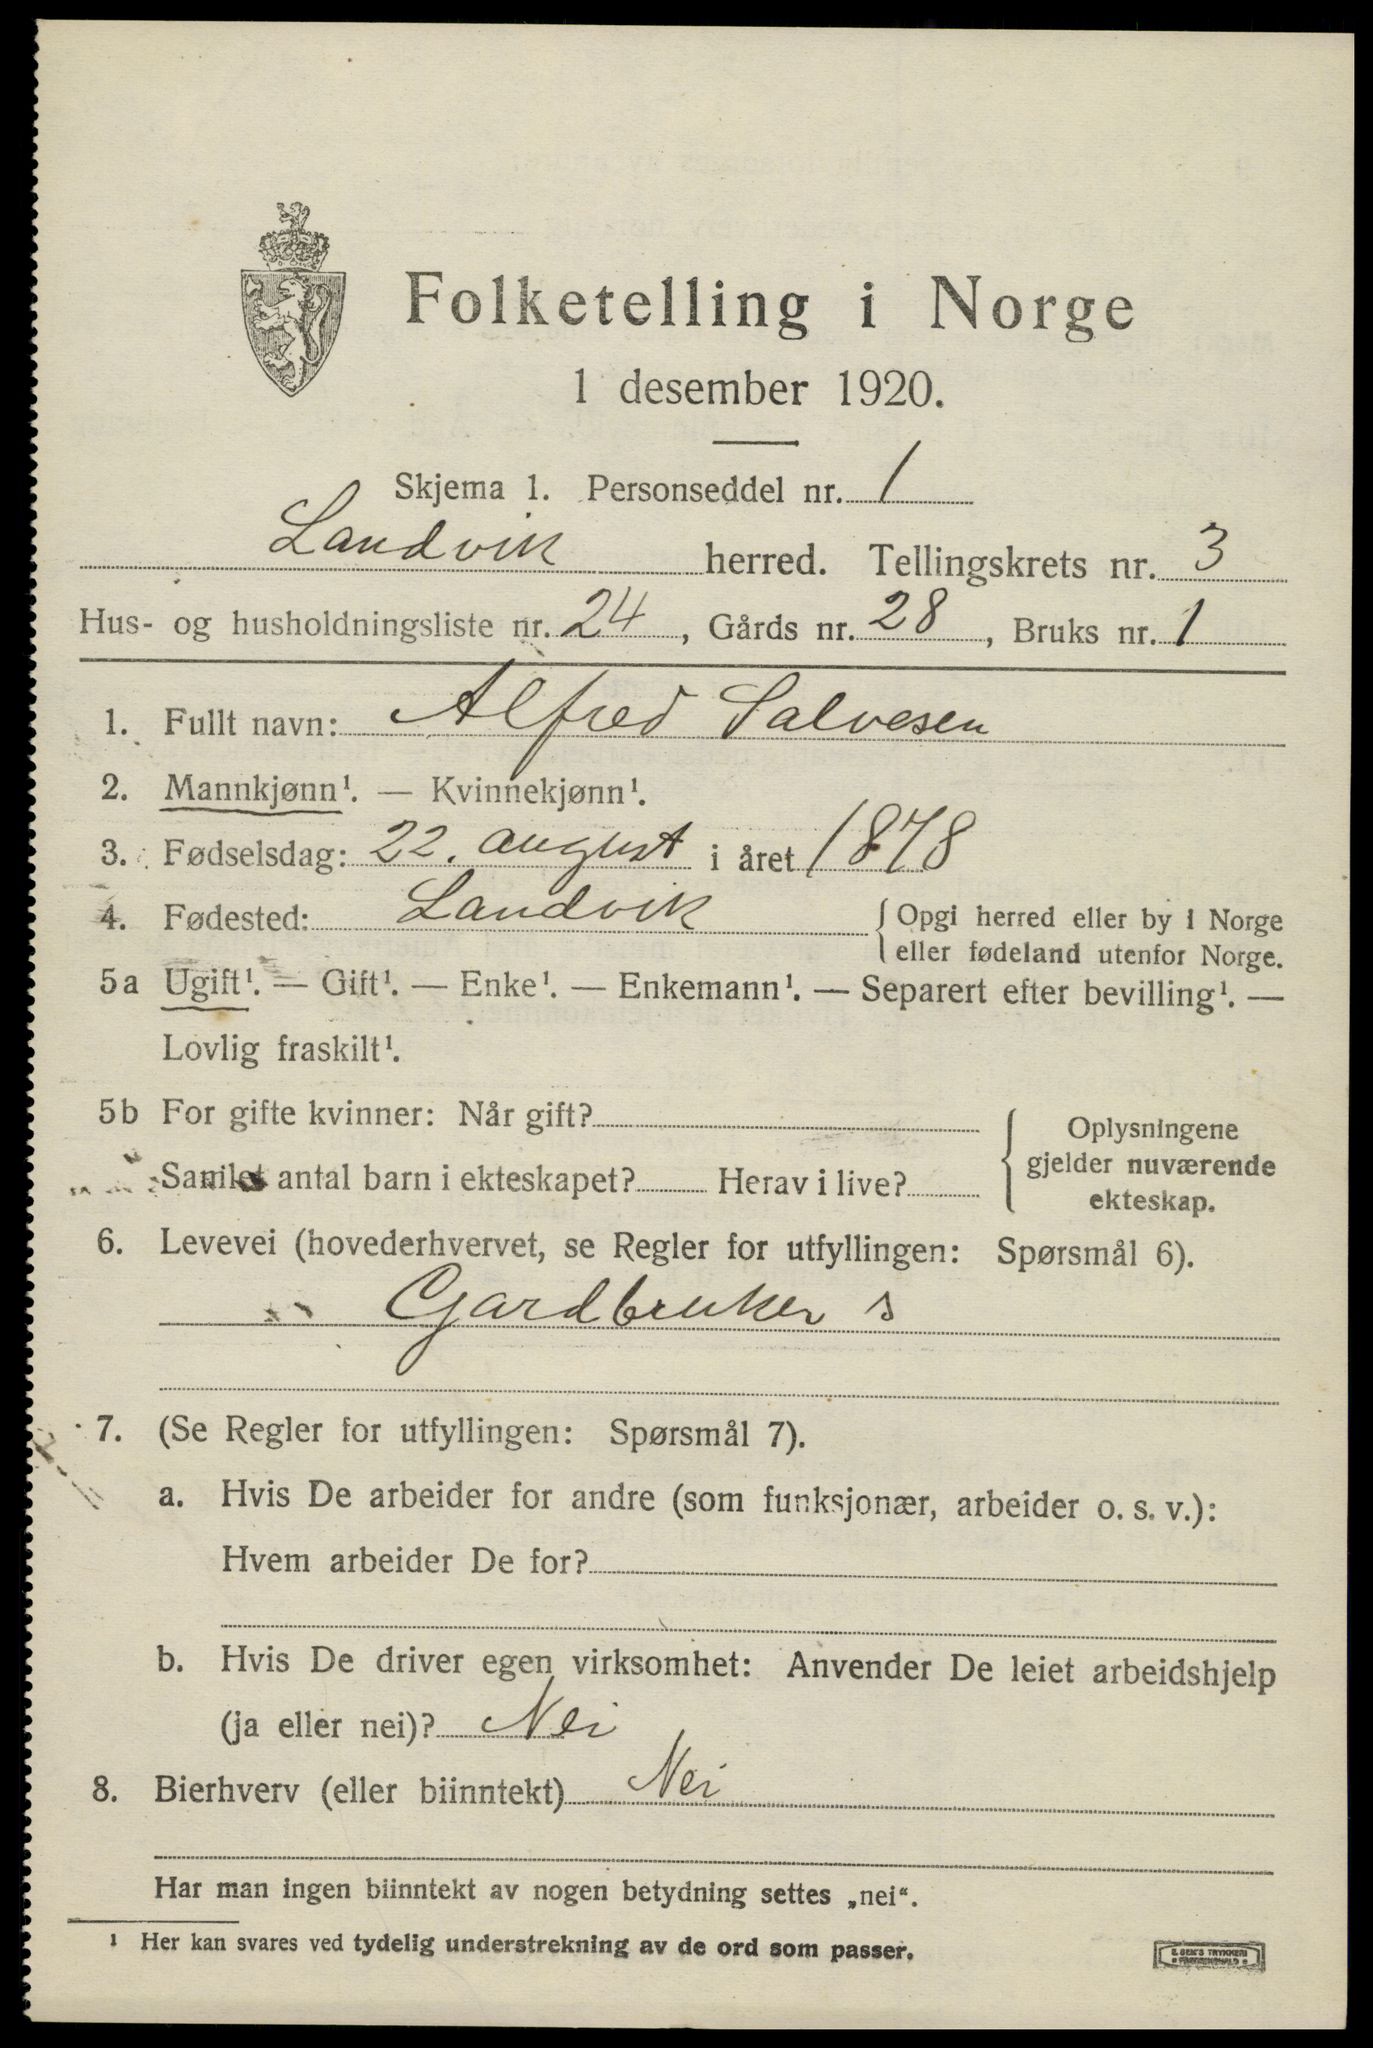 Folketelling i Norge
1 desember 1920.
Skjema 1. Personseddel nr. 1
Landvik herred. Tellingskrets nr. 3
Hus- og husholdningsliste nr. 24, Gårds nr. 28, Bruks nr. 1
1. Fullt navn: Alfred Salvesen
2. Mannkjønn¹. — Kvinnekjønn¹.
3. Fødselsdag: 22. august i året 1878
4. Fødested: Landvik { Opgi herred eller by i Norge
eller fødeland utenfor Norge.
5a Ugift¹. — Gift¹. — Enke¹. — Enkemann¹. — Separert efter bevilling¹. —
Lovlig fraskilt¹.
5b For gifte kvinner: Når gift?
Samlet antal barn i ekteskapet? Herav i live?
{ Oplysningene
gjelder nuværende
ekteskap.
6. Levevei (hovederhvervet, se Regler for utfyllingen: Spørsmål 6).
Gardbruker s
7. (Se Regler for utfyllingen: Spørsmål 7).
a. Hvis De arbeider for andre (som funksjonær, arbeider o. s. v.):
Hvem arbeider De for?
b. Hvis De driver egen virksomhet: Anvender De leiet arbeidshjelp
(ja eller nei)? Nei
8. Bierhverv (eller biinntekt) Nei
Har man ingen biinntekt av nogen betydning settes „nei“.
¹ Her kan svares ved tydelig understrekning av de ord som passer.